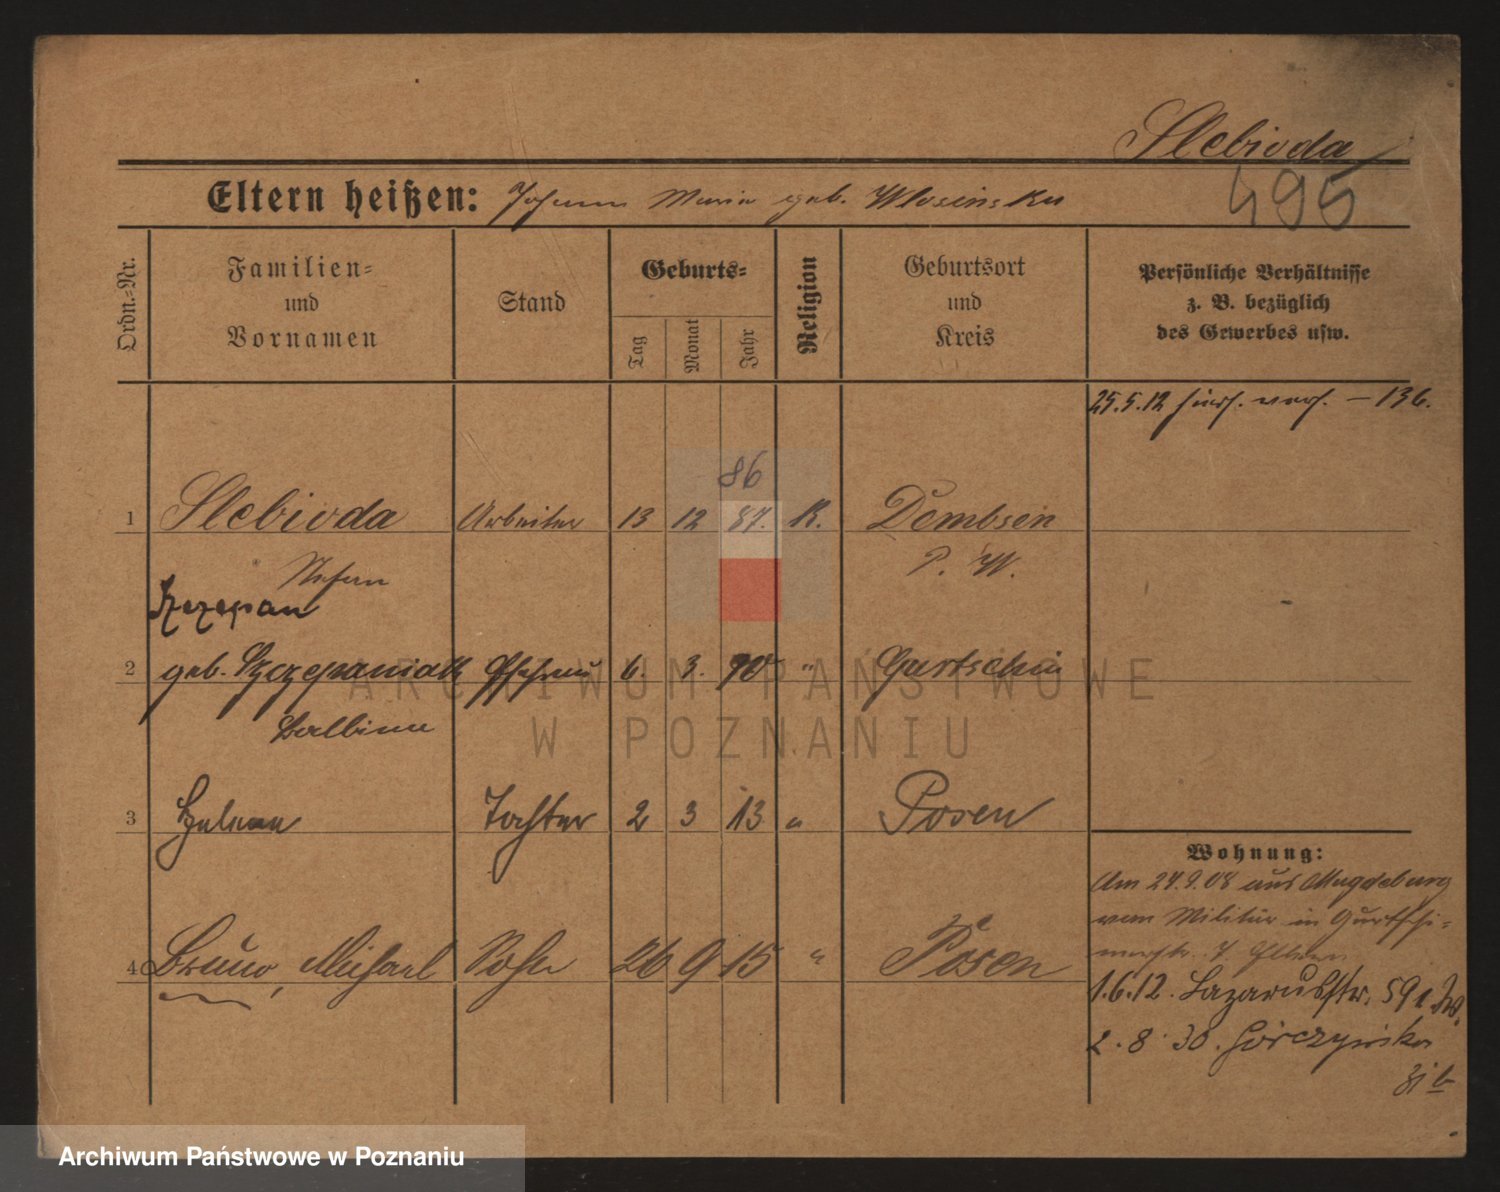 Slebioda
495
Eltern heißen: Johann Marie geb. Wlosinska
Ordn.-Nr.
Familien-
und
Vornamen
Stand
Geburts-
Tag
Monat
Jahr
Religion
Geburtsort
und
Kreis
Persönliche Verhältnisse
z. B. bezüglich
des Gewerbes usw.
25.5.12 – 136.
86
1 Slebioda Arbeiter 13 12 87. K. Dembsen
Stefan P. W.
Szczepan
2 geb. Szczepaniak Ehefrau 6. 3. 90 " Gurtschin
Balbina
3 Helene Tochter 2 3 13 " Posen
Wohnung:
Am 24.9.08 aus Magdeburg
vom Militär in Gurtschi-
4 Bruno, Michael Sohn 26 9 15 " Posen
1.6.12. Lazarusstr. 59
2.8.30. Górczyńska
31b
ARCHIWUM PAŃSTWOWE
W POZNANIU
Archiwum Państwowe w Poznaniu